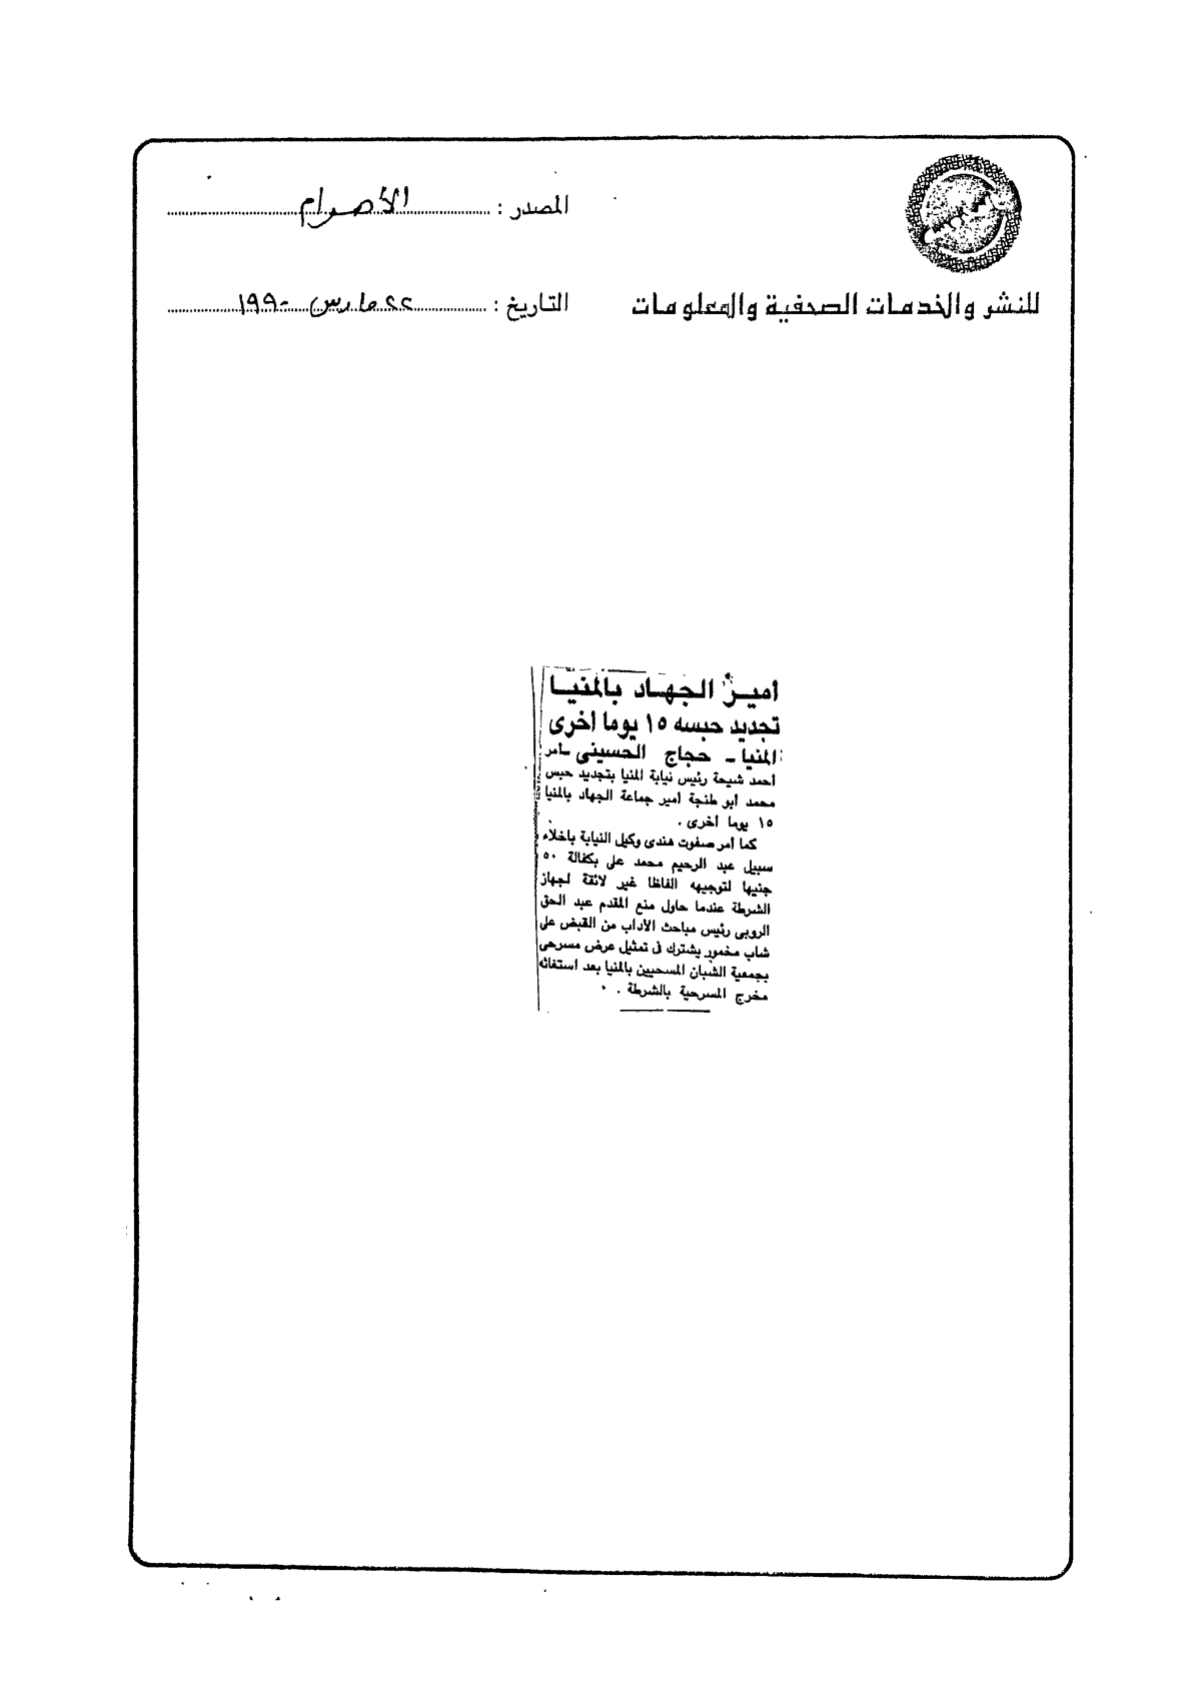 المصدر : الأهرام
للنشر والخدمات الصحفية والمعلومات
التاريخ : ٢٢ مارس ١٩٩٠
أمير الجهاد بالمنيا
تجديد حبسه ١٥ يوما أخرى
المنيا ـ حجاج الحسينى ـ أمر
أحمد شيحة رئيس نيابة المنيا بتجديد حبس
محمد أبو طنجة أمير جماعة الجهاد بالمنيا
١٥ يوما أخرى .
كما أمر صفوت هندى وكيل النيابة باخلاء
سبيل عبد الرحيم محمد على بكفالة ٥٠
جنيها لتوجيهه الفاظا غير لائقة لجهاز
الشرطة عندما حاول منع المقدم عبد الحق
الروبى رئيس مباحث الأداب من القبض على
شاب مخمور يشترك فى تمثيل عرض مسرحى
بجمعية الشبان المسحيين بالمنيا بعد استغاثه
مخرج المسرحية بالشرطة .